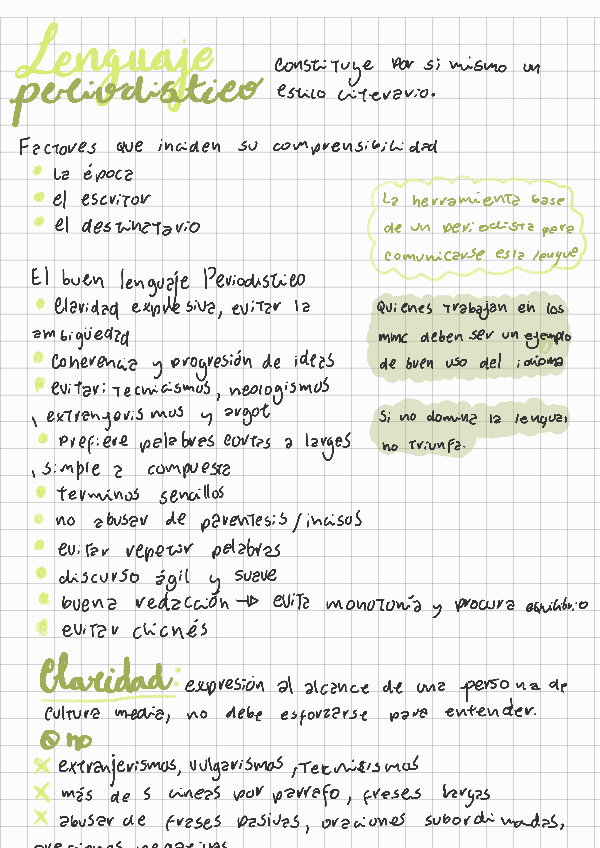 Lenguaje
periodistico
constituye por si mismo un
estilo literario.
Factores que inciden su comprensibilidad
La época
el escritor
el destinatario
La herramienta base
de un periodista para
comunicarse es la lengua
El buen lenguaje Periodistico
Claridad expresiva, evitar la
ambigüedad
Quienes trabajan en los
mmc deben ser un ejemplo
de buen uso del idioma
coherencia y progresión de ideas
evitar: tecnicismos, neologismos
, extranjerismos y argot
Si no domina la lengua,
no triunfa.
prefiere palabras cortas a largas
, simple a compuesta
terminos sencillos
no abusar de parentesis/incisos
evitar repetir palabras
discurso ágil y suave
buena redacción → evita monotonía y procura equilibrio
evitar clichés
Claridad: expresión al alcance de una persona de
cultura media, no debe esforzarse para entender.
no
extranjerismos, vulgarismos, Tecnicismos
más de 5 lineas por parrafo, frases largas
abusar de frases pasivas, oraciones subordinadas,
oraciones negativas